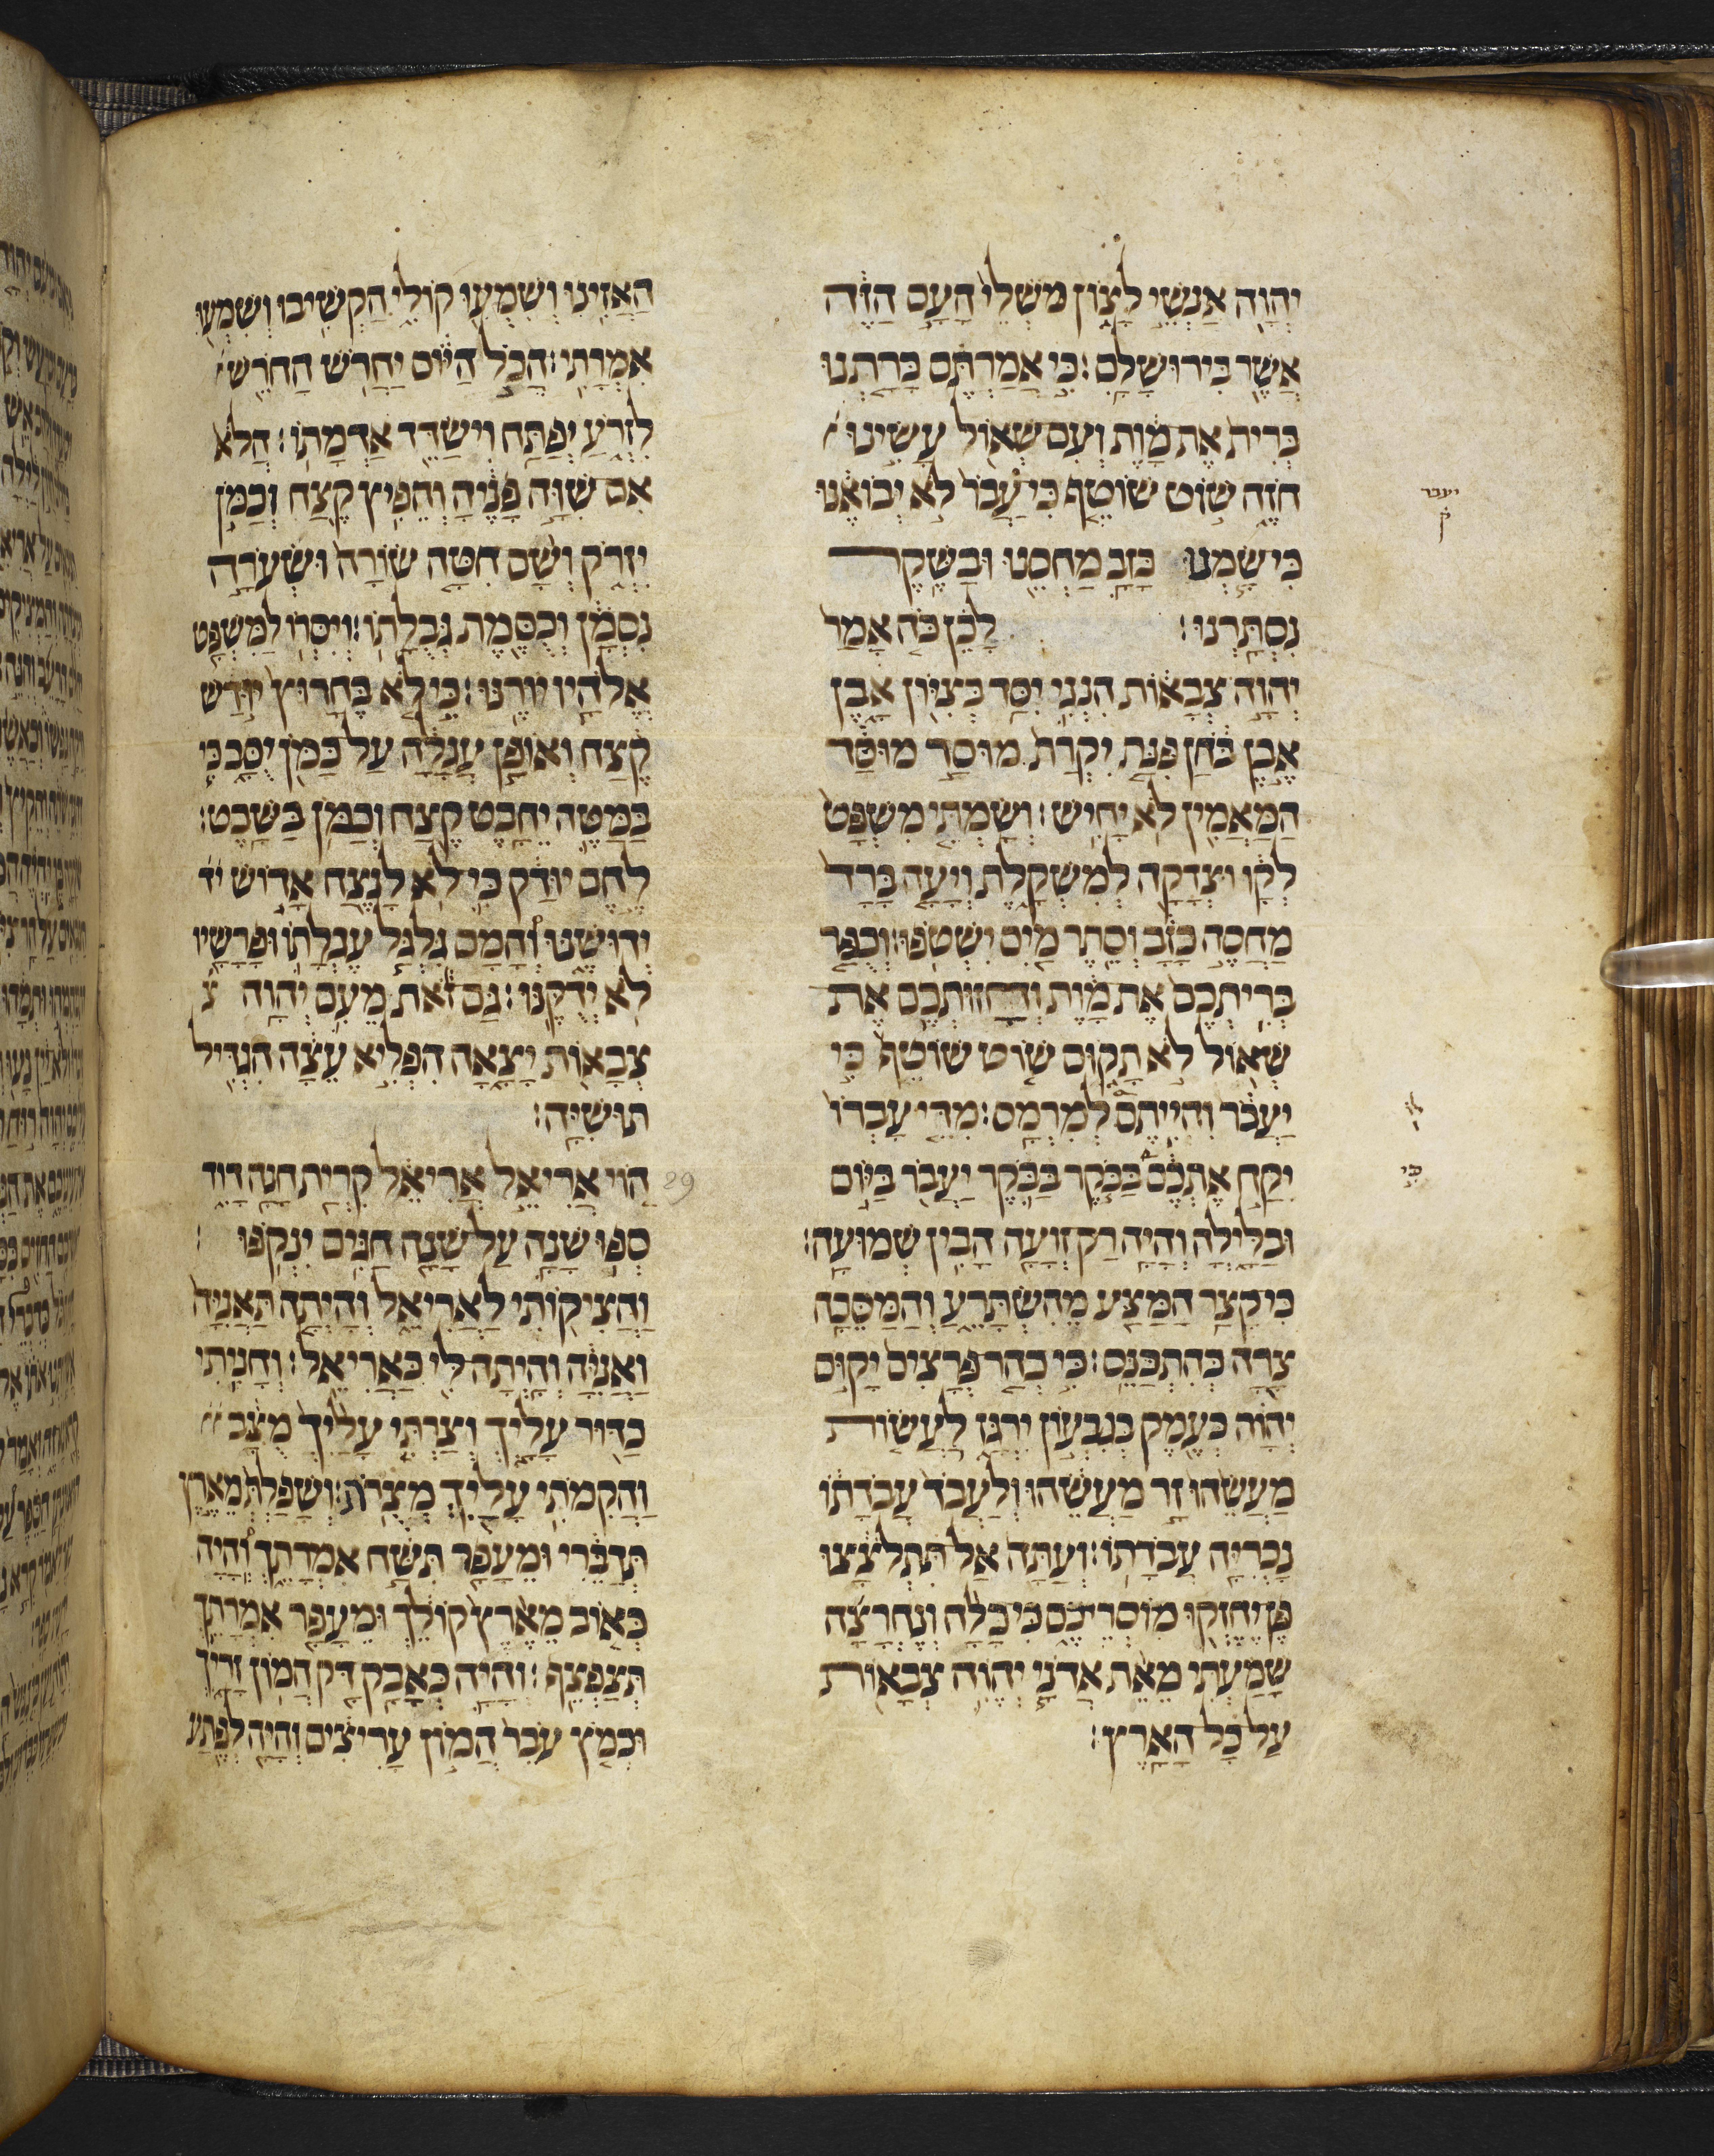 יהוה אנשי לצון משלי העם הזה
אשר בירושלם: כי אמרתם כרתנו
ברית את מות ועם שאול עשינו
חזה שוט שוטף כי עבר לא יבואנו
יעבר
ק
כי שמנו כזב מחסנו ובשקר
נסתרנו: לכן כה אמר
יהוה צבאות הנני יסד בציון אבן
אבן בחן פנת יקרת מוסד מוסד
המאמין לא יחיש: ושמתי משפט
לקו וצדקה למשקלת ויעה ברד
מחסה כזב וסתר מים ישטפו: וכפר
בריתכם את מות וחזותכם את
שאול לא תקום שוט שוטף כי
יעבר והייתם למרמס: מדי עברו
לו
יקח אתכם בבקר בבקר יעבר ביום
כי
ובלילה והיה רק זועה הבין שמועה:
כי קצר המצע מהשתרע והמסכה
צרה כהתכנס: כי כהר פרצים יקום
יהוה כעמק בגבעון ירגז לעשות
מעשהו זר מעשהו ולעבד עבדתו
נכריה עבדתו: ועתה אל תתלוצצו
פן יחזקו מוסריכם כי כלה ונחרצה
שמעתי מאת אדני יהוה צבאות
על כל הארץ:
האזינו ושמעו קולי הקשיבו ושמעו
אמרתי: הכל היום יחרש החרש
לזרע יפתח וישדד אדמתו: הלא
אם שוה פניה והפיץ קצח וכמן
יזרק ושם חטה שורה ושערה
נסמן וכסמת גבלתו: ויסרו למשפט
אלהיו יורנו: כי לא בחרוץ יודש
קצח ואופן עגלה על כמן יוסב כי
במטה יחבט קצח וכמן בשבט:
לחם יודק כי לא לנצח אדוש יד
ידושנו והמם גלגל עגלתו ופרשיו
לא ידקנו: גם זאת מעם יהוה צ
צבאות יצאה הפליא עצה הגדיל
תושיה:
29 הוי אריאל אריאל קרית חנה דוד
ספו שנה על שנה חגים ינקפו:
והציקותי לאריאל והיתה תאניה
ואניה והיתה לי כאריאל: וחניתי
כדור עליך וצרתי עליך מצב
והקימתי עליך מצרת: ושפלת מארץ
תדברי ומעפר תשח אמרתך והיה
כאוב מארץ קולך ומעפר אמרתך
תצפצף: והיה כאבק דק המון זריך
וכמץ עבר המון עריצים והיה לפתע